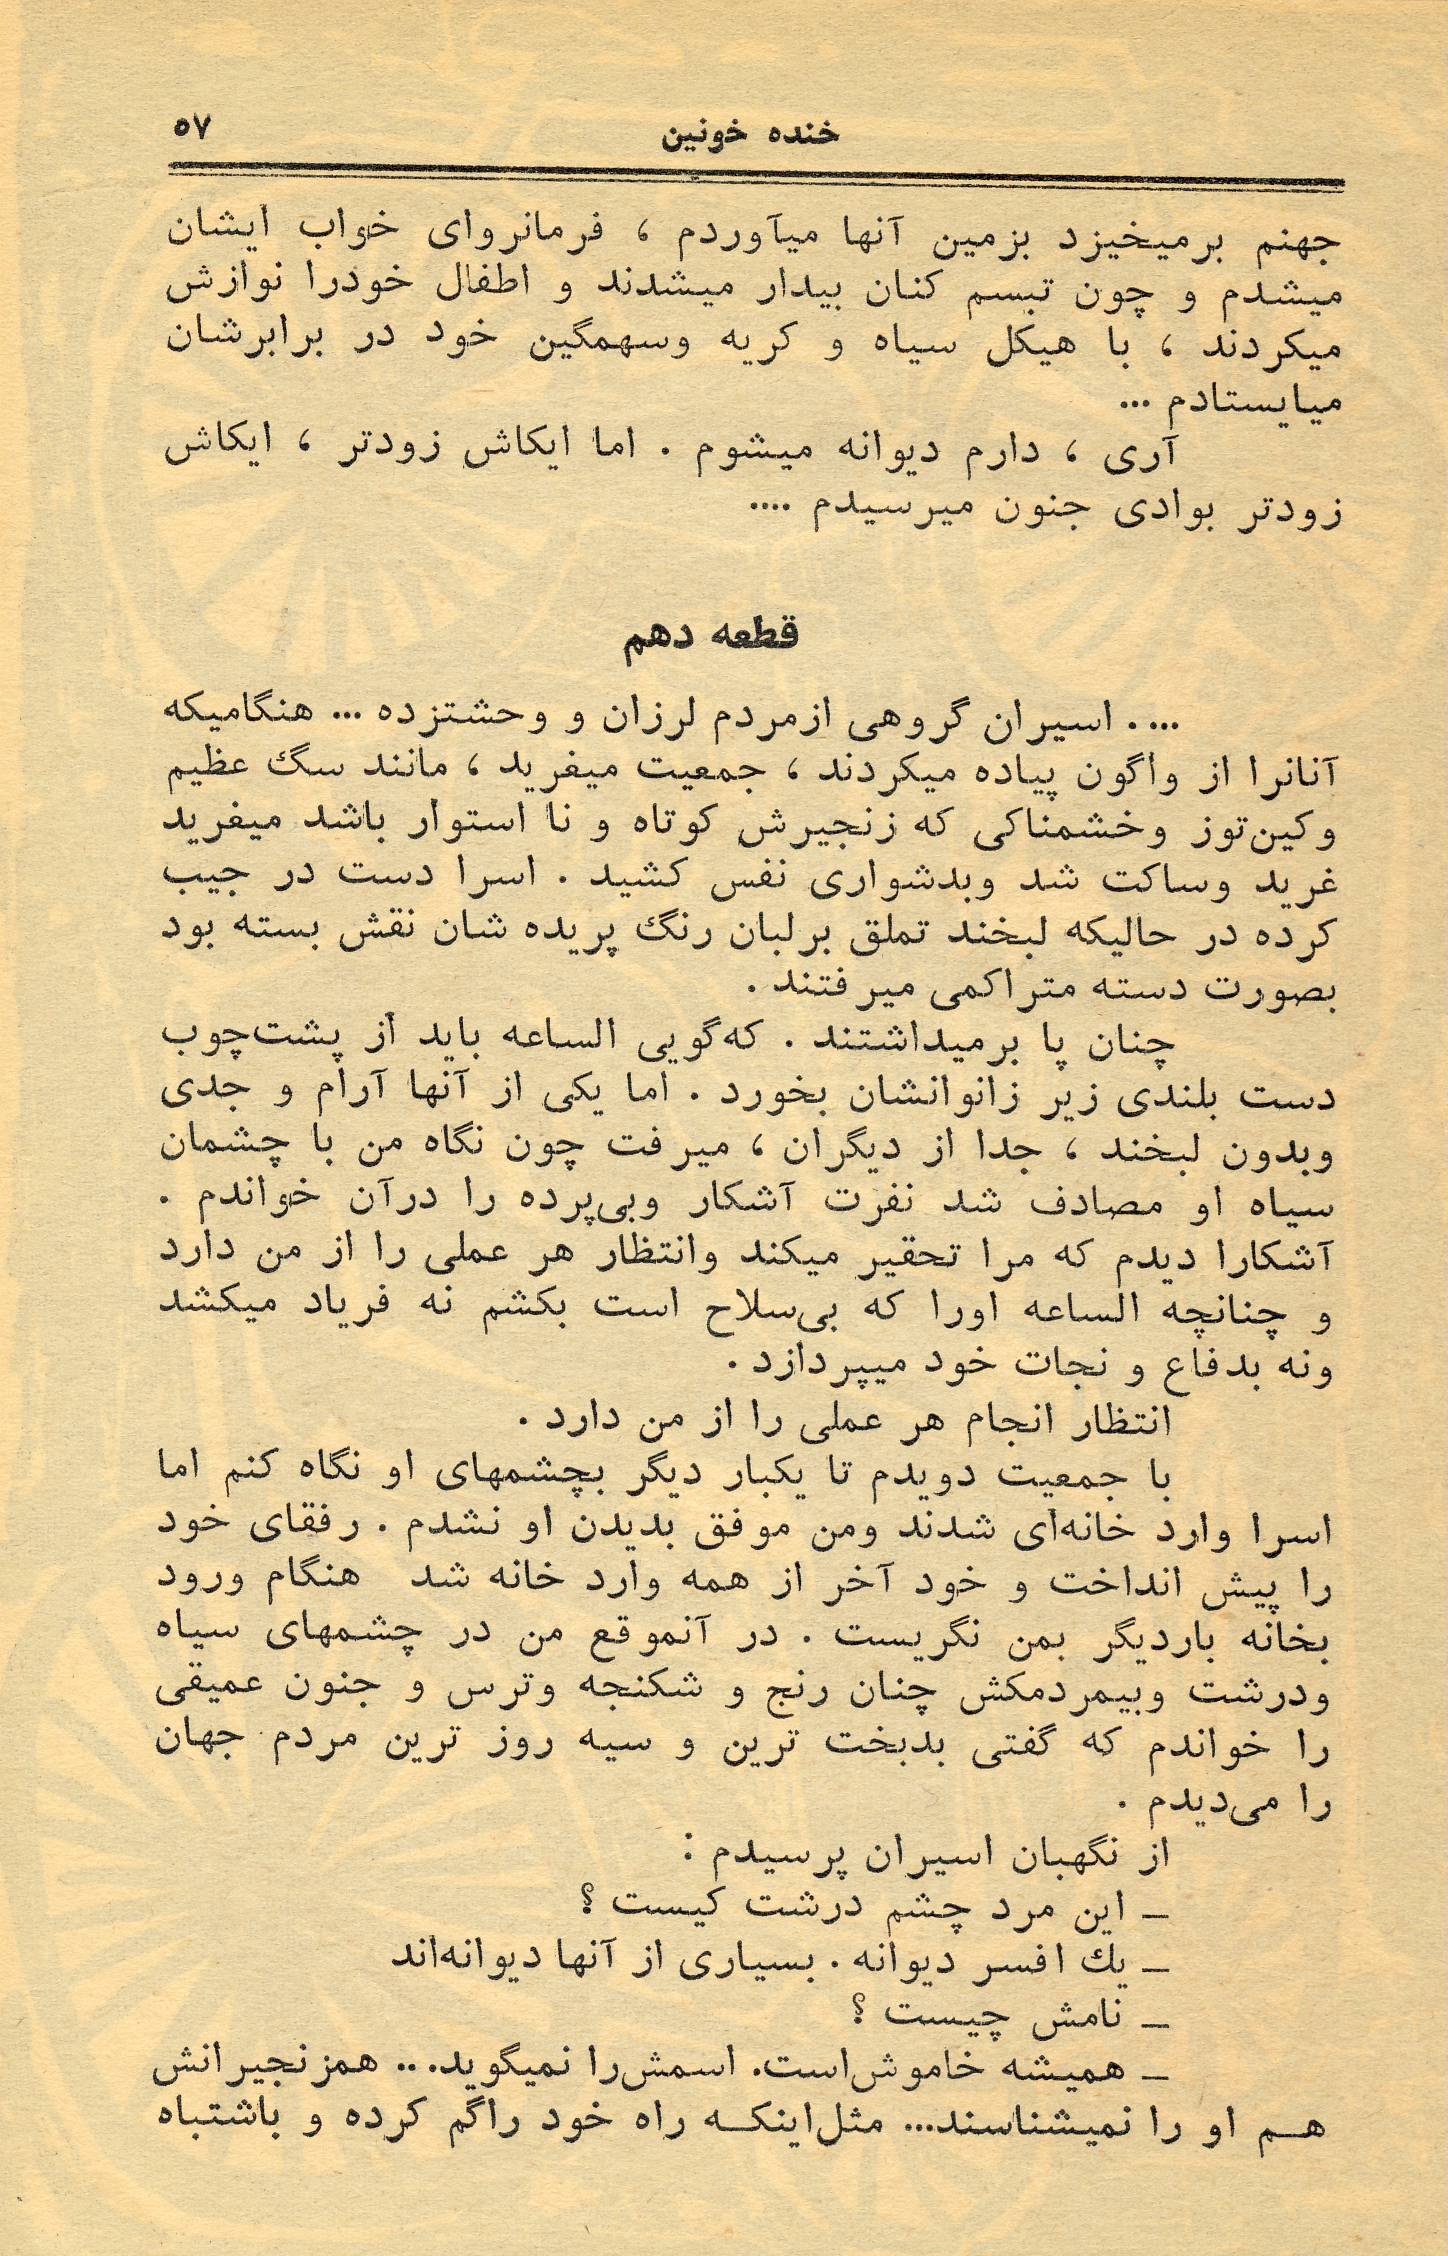 خنده خونین
۵۷
جهنم برمیخیزد بزمین آنها میآوردم ، فرمانروای خواب ایشان
میشدم و چون تبسم کنان بیدار میشدند و اطفال خودرا نوازش
میکردند ، با هیکل سیاه و کریه وسهمگین خود در برابرشان
میایستادم ...
آری ، دارم دیوانه میشوم . اما ایکاش زودتر ، ایکاش
زودتر بوادی جنون میرسیدم ....
قطعه دهم
.... اسیران گروهی ازمردم لرزان و وحشتزده ... هنگامیکه
آنانرا از واگون پیاده میکردند ، جمعیت میغرید ، مانند سگ عظیم
وکین‌توز وخشمناکی که زنجیرش کوتاه و نا استوار باشد میغرید
غرید وساکت شد وبدشواری نفس کشید . اسرا دست در جیب
کرده در حالیکه لبخند تملق برلبان رنگ پریده شان نقش بسته بود
بصورت دسته متراکمی میرفتند .
چنان پا برمیداشتند . که‌گویی الساعه باید از پشت‌چوب
دست بلندی زیر زانوانشان بخورد . اما یکی از آنها آرام و جدی
وبدون لبخند ، جدا از دیگران ، میرفت چون نگاه من با چشمان
سیاه او مصادف شد نفرت آشکار وبی‌پرده را درآن خواندم .
آشکارا دیدم که مرا تحقیر میکند وانتظار هر عملی را از من دارد
و چنانچه الساعه اورا که بی‌سلاح است بکشم نه فریاد میکشد
ونه بدفاع و نجات خود میپردازد .
انتظار انجام هر عملی را از من دارد .
با جمعیت دویدم تا یکبار دیگر بچشمهای او نگاه کنم اما
اسرا وارد خانه‌ای شدند ومن موفق بدیدن او نشدم . رفقای خود
را پیش انداخت و خود آخر از همه وارد خانه شد هنگام ورود
بخانه باردیگر بمن نگریست . در آنموقع من در چشمهای سیاه
ودرشت وبیمردمکش چنان رنج و شکنجه وترس و جنون عمیقی
را خواندم که گفتی بدبخت ترین و سیه روز ترین مردم جهان
را می‌دیدم .
از نگهبان اسیران پرسیدم :
ـ این مرد چشم درشت کیست ؟
ـ یك افسر دیوانه . بسیاری از آنها دیوانه‌اند
ـ نامش چیست ؟
ـ همیشه خاموش‌است. اسمش‌را نمیگوید... همزنجیرانش
هـم او را نمیشناسند... مثل‌اینکـه راه خود راگم کرده و باشتباه